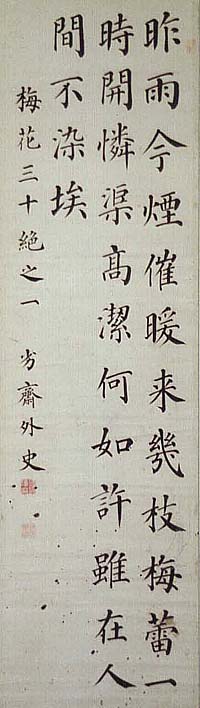 昨雨今煙催暖来幾枝梅蕾一
時開憐渠高潔何如許雖在人
間不染埃
梅花三十絶之一 岁齋外史